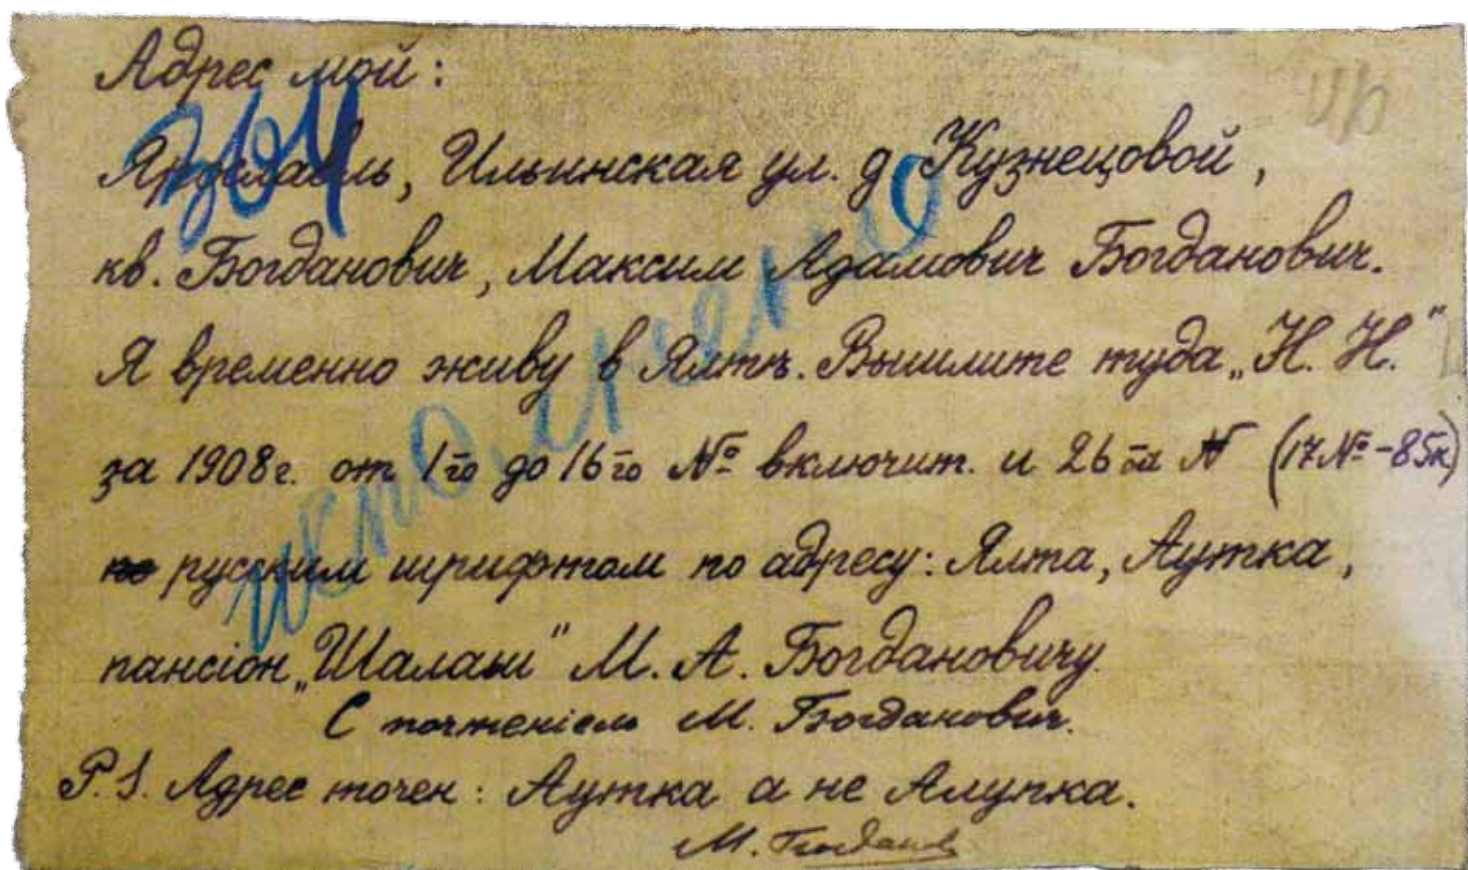 Адрес мой:
Ярославль, Ильинская ул. д Кузнецовой,
кв. Богданович, Максим Адамович Богданович.
Я временно живу в Ялтѣ. Вышлите туда „Н. Н.“
за 1908г. от 1го до 16го № включит. и 26ой № (17№-85к)
по русским шрифтом по адресу: Ялта, Аутка,
пансіон „Шалаш“ М. А. Богдановичу.
С почтеніем М. Богданович.
P.S. Адрес точен: Аутка а не Алупка.
М. Богданов
364
исполнено